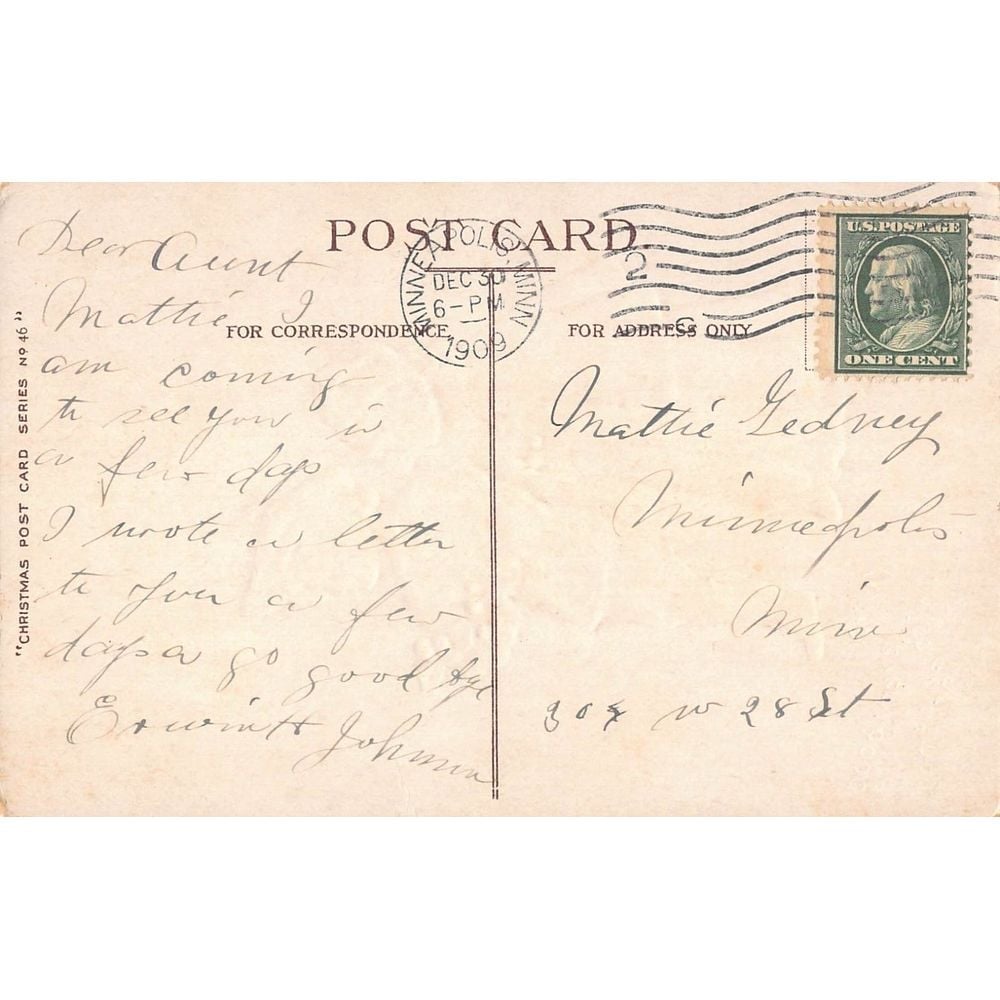 POST CARD.
MINNEAPOLIS, MINN
DEC 30
6-PM
1909
2
U.S. POSTAGE
ONE CENT
FOR CORRESPONDENCE
FOR ADDRESS ONLY
"CHRISTMAS POST CARD SERIES No 46"
Dear Aunt
Mattie I
am coming
to see you in
a few days
I wrote a letter
to you a few
days a go good bye
Erwin H
Johnson
Mattie Gedney
Minneapolis
Minn
W 28 St